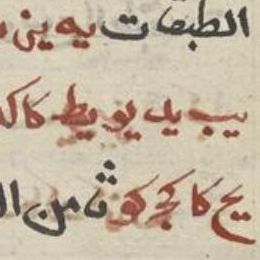 الطبقات يه يز
يب يد يو يط كا كد
يح كا كج كو ث من ال